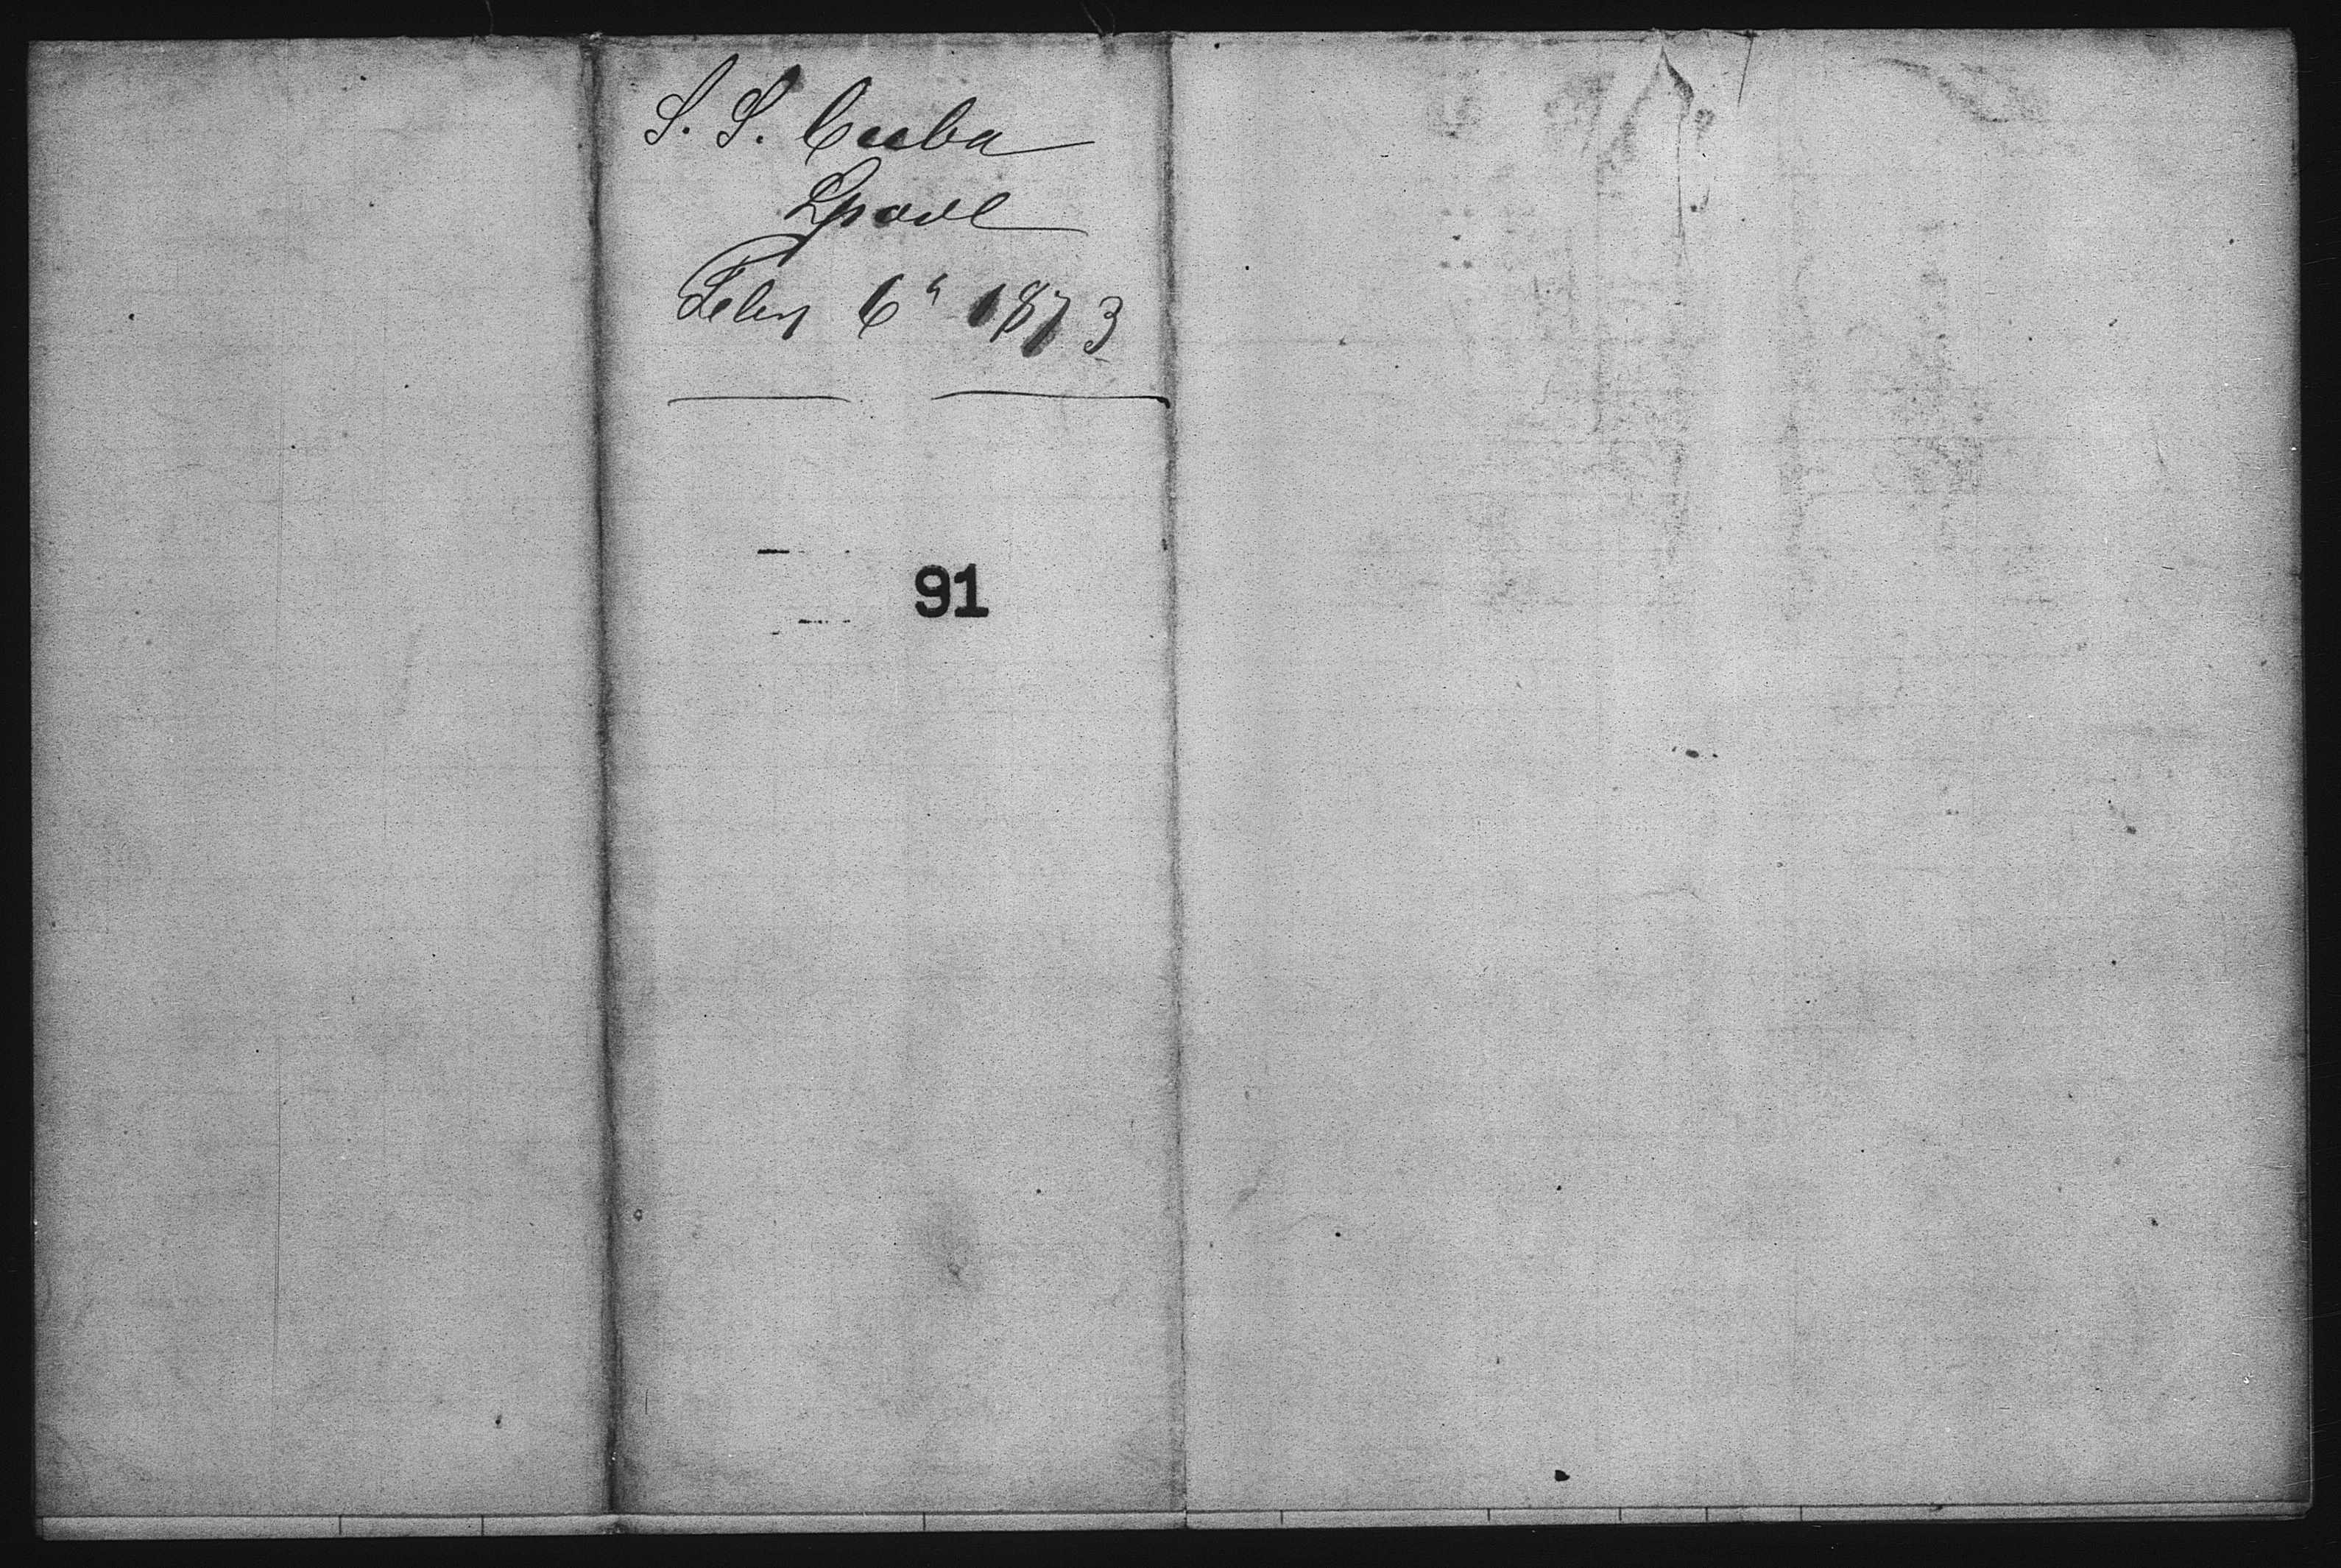 S. S. Cuba
Lpool
Feby 6" 1873
91